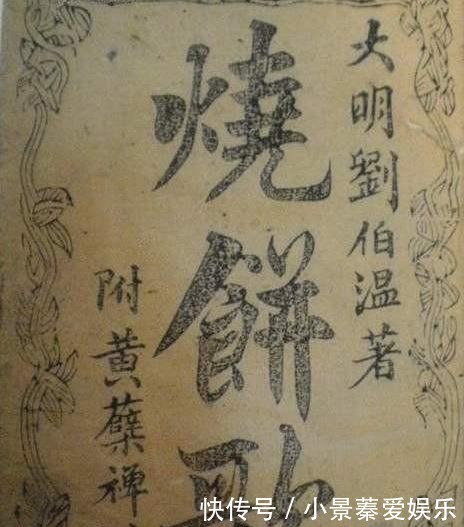 大明劉伯温著
燒餅歌
附黄蘗禅
快传号 / 小景蓁爱娱乐